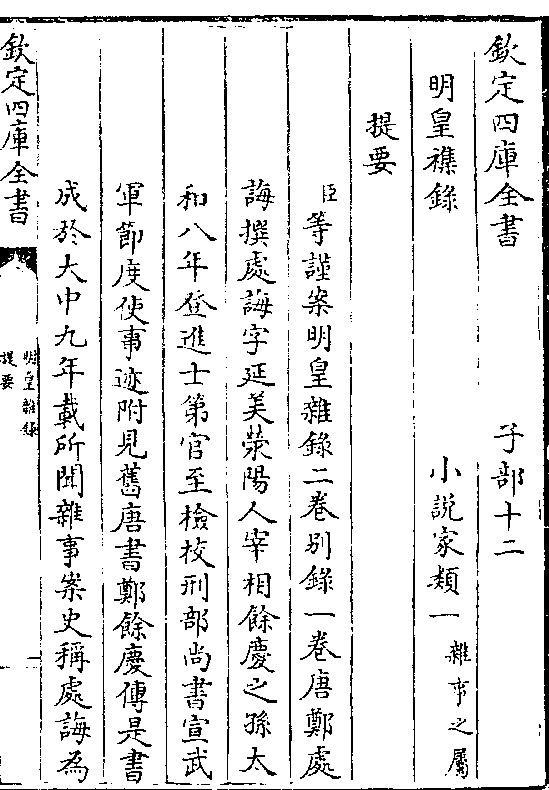 欽定四庫全書　子部十二
明皇襍錄　小說家類一雜事之屬
提要
臣等謹案明皇雜錄二卷別錄一卷唐鄭處
誨撰處誨字延美滎陽人宰相餘慶之孫太
和八年登進士第官至檢校刑部尚書宣武
軍節度使事迹附見舊唐書鄭餘慶傳是書
成於大中九年載所聞雜事案史稱處誨為
欽定四庫全書
明皇雜錄
提要